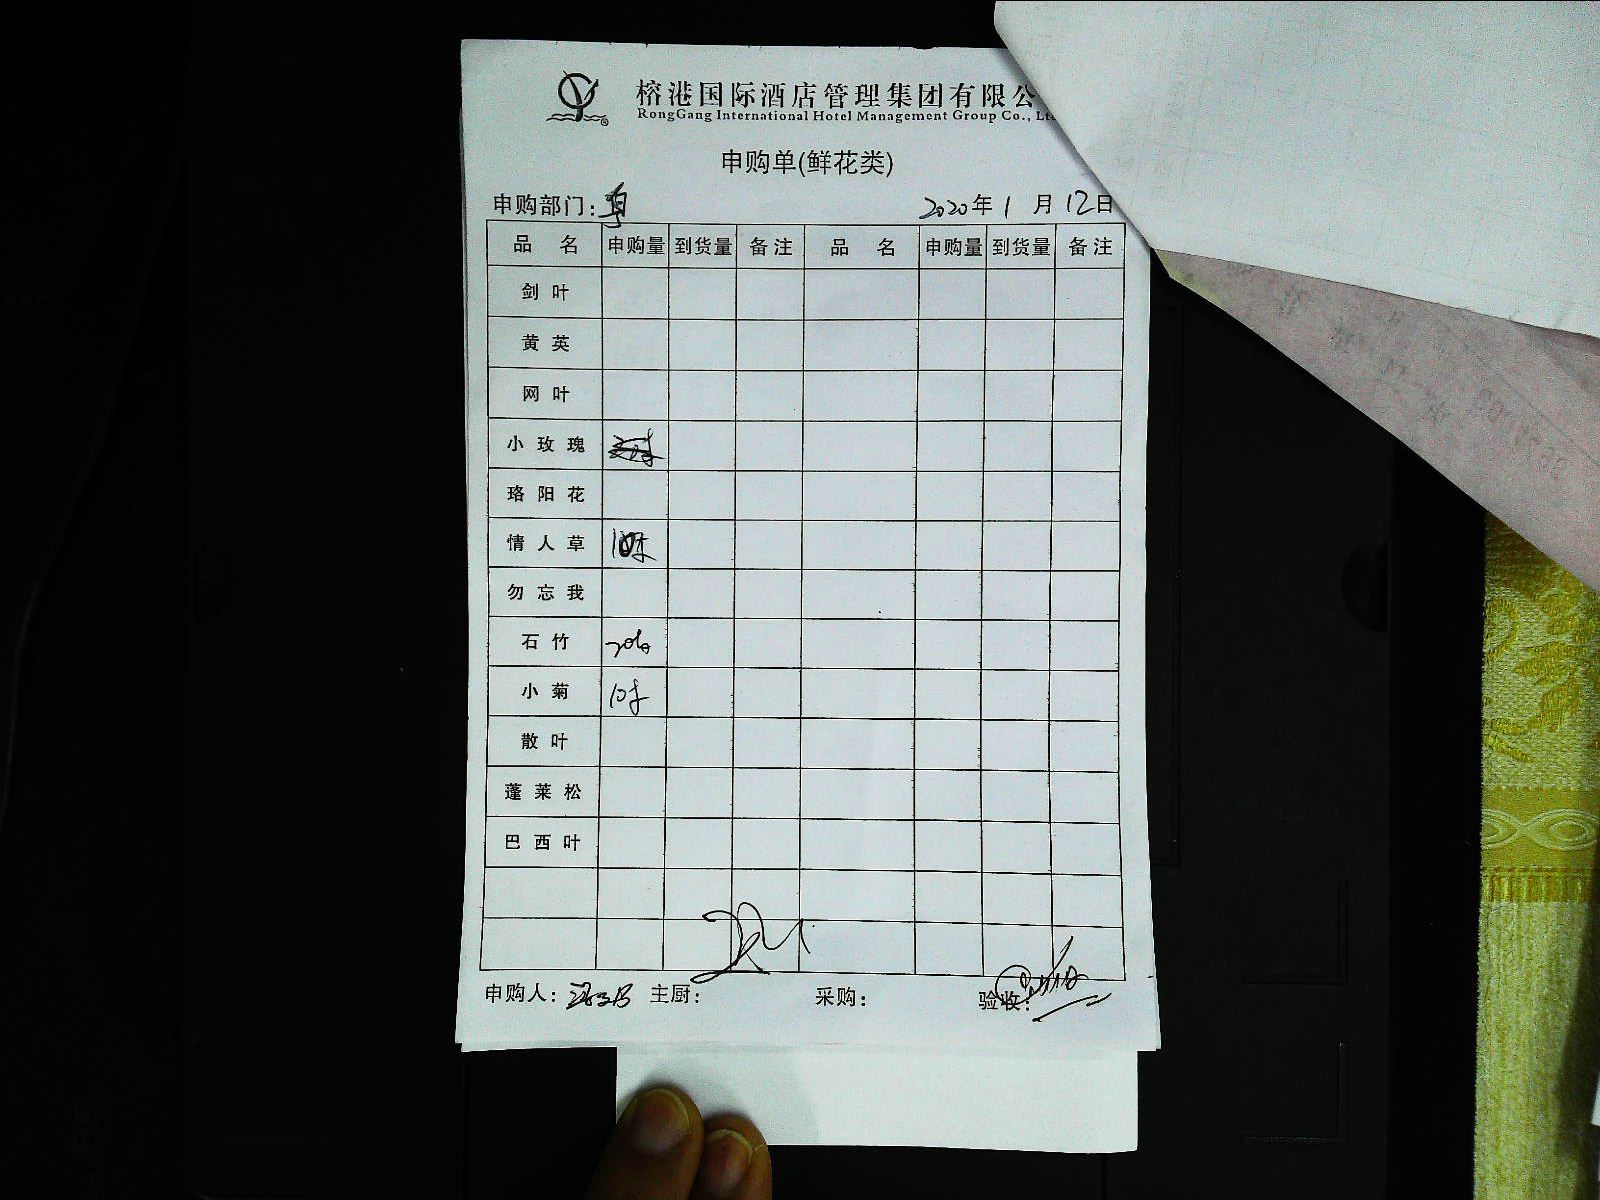 榕港国际酒店管理集团有限公
RongGang International Hotel Management Group Co., Lt
申购单(鲜花类)
申购部门: 2020年1月12日
品名 申购量 到货量 备注 品名 申购量 到货量 备注
剑叶
黄英
网叶
小玫瑰
珞阳花
情人草 10
勿忘我
石竹 20
小菊 10
散叶
蓬莱松
巴西叶
申购人: 主厨: 采购: 验收: